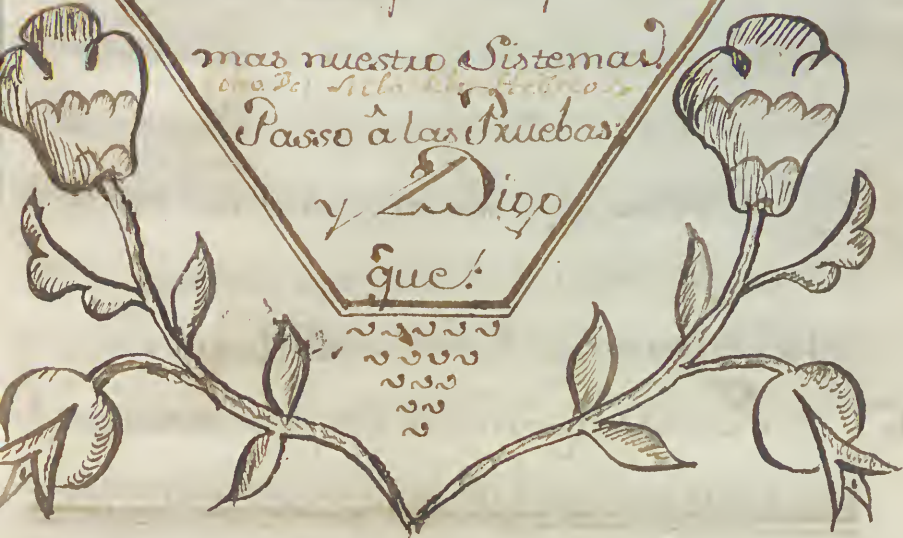 mas nuestro Sistema.
Passo â las Pruebas;
y Digo
que: